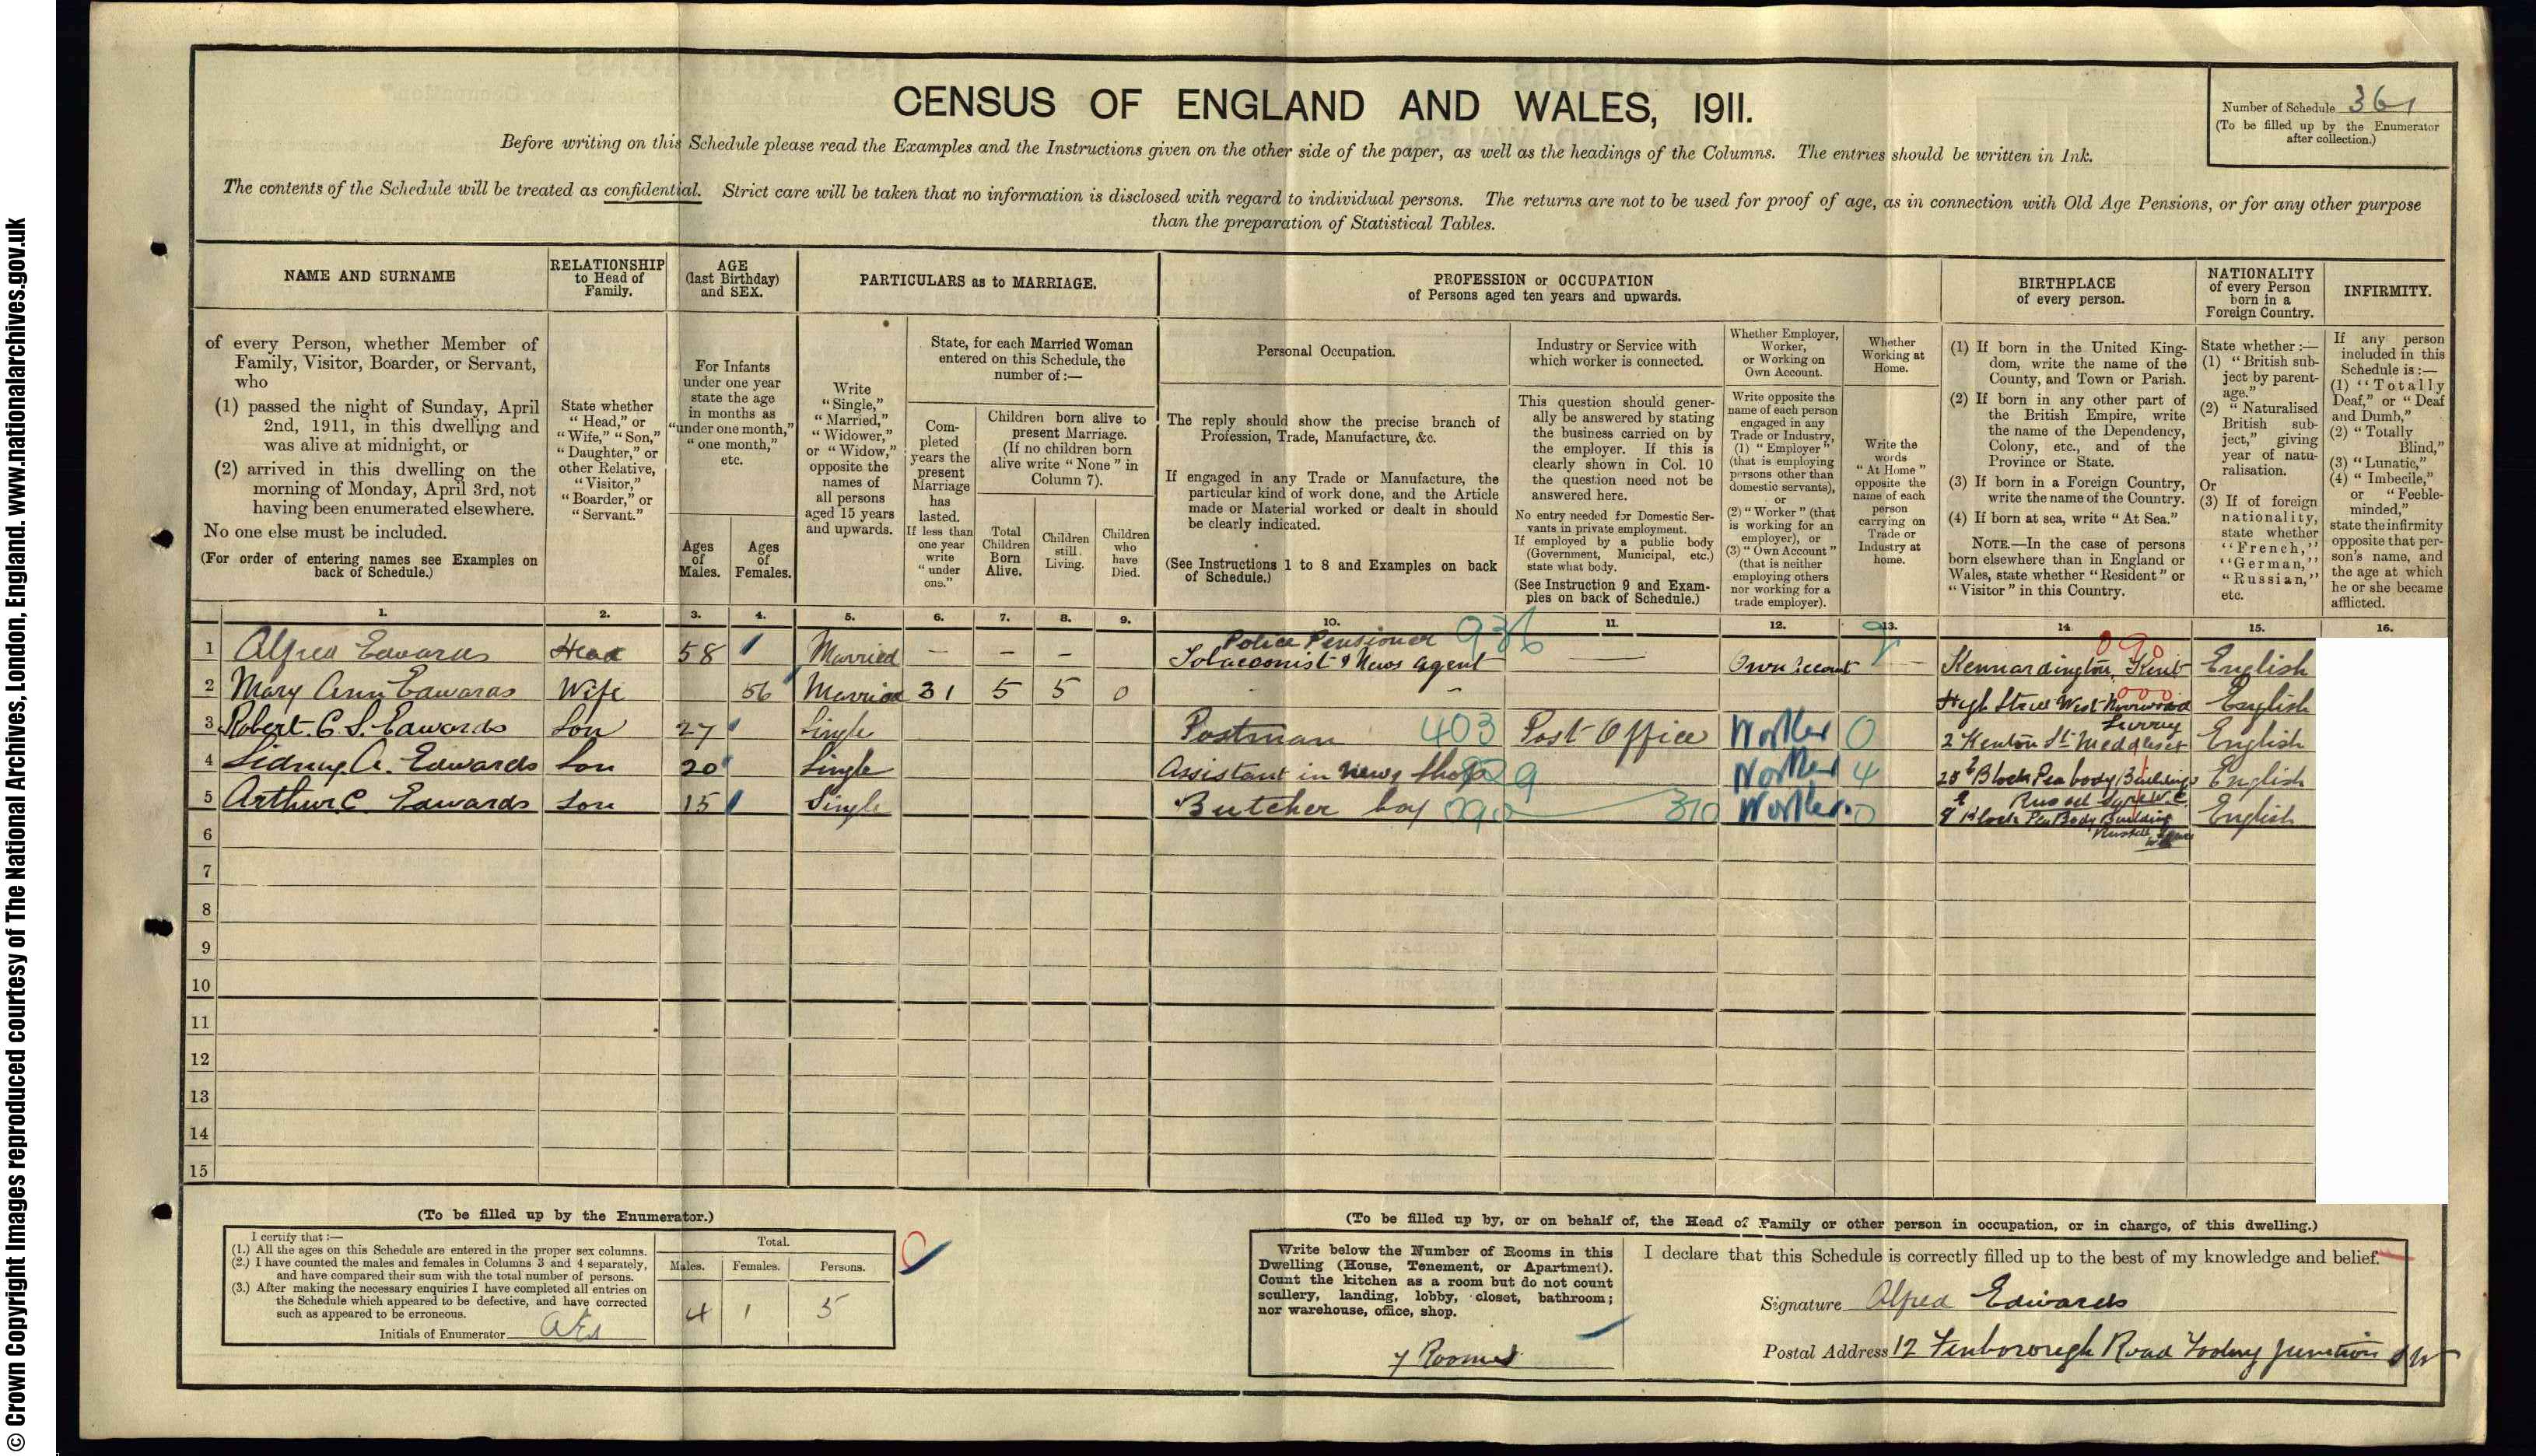 © Crown Copyright Images reproduced courtesy of The National Archives, London, England. www.nationalarchives.gov.uk
CENSUS OF ENGLAND AND WALES, 1911.
Number of Schedule 361
(To be filled up by the Enumerator
after collection.)
Before writing on this Schedule please read the Examples and the Instructions given on the other side of the paper, as well as the headings of the Columns. The entries should be written in Ink.
The contents of the Schedule will be treated as confidential. Strict care will be taken that no information is disclosed with regard to individual persons. The returns are not to be used for proof of age, as in connection with Old Age Pensions, or for any other purpose
than the preparation of Statistical Tables.
NAME AND SURNAME
of every Person, whether Member of
Family, Visitor, Boarder, or Servant,
who
(1) passed the night of Sunday, April
2nd, 1911, in this dwelling and
was alive at midnight, or
(2) arrived in this dwelling on the
morning of Monday, April 3rd, not
having been enumerated elsewhere.
No one else must be included.
(For order of entering names see Examples on
back of Schedule.)
RELATIONSHIP
to Head of
Family.
State whether
"Head," or
"Wife," "Son,"
"Daughter," or
other Relative,
"Visitor,"
"Boarder," or
"Servant."
AGE
(last Birthday)
and SEX.
For Infants
under one year
state the age
in months as
"under one month,"
"one month,"
etc.
Ages
of
Males.
Ages
of
Females.
PARTICULARS as to MARRIAGE.
Write
"Single,"
"Married,"
"Widower,"
or "Widow,"
opposite the
names of
all persons
aged 15 years
and upwards.
State, for each Married Woman
entered on this Schedule, the
number of:—
Com-
pleted
years the
present
Marriage
has
lasted.
If less than
one year
write
"under
one."
Children born alive to
present Marriage.
(If no children born
alive write "None" in
Column 7).
Total
Children
Born
Alive.
Children
still
Living.
Children
who
have
Died.
PROFESSION or OCCUPATION
of Persons aged ten years and upwards.
Personal Occupation.
The reply should show the precise branch of
Profession, Trade, Manufacture, &c.
If engaged in any Trade or Manufacture, the
particular kind of work done, and the Article
made or Material worked or dealt in should
be clearly indicated.
(See Instructions 1 to 8 and Examples on back
of Schedule.)
Industry or Service with
which worker is connected.
This question should gener-
ally be answered by stating
the business carried on by
the employer. If this is
clearly shown in Col. 10
the question need not be
answered here.
No entry needed for Domestic Ser-
vants in private employment.
If employed by a public body
(Government, Municipal, etc.)
state what body.
(See Instruction 9 and Exam-
ples on back of Schedule.)
Whether Employer,
Worker,
or Working on
Own Account.
Write opposite the
name of each person
engaged in any
Trade or Industry,
(1) "Employer"
(that is employing
persons other than
domestic servants),
or
(2) "Worker" (that
is working for an
employer), or
(3) "Own Account"
(that is neither
employing others
nor working for a
trade employer).
Whether
Working at
Home.
Write the
words
"At Home"
opposite the
name of each
person
carrying on
Trade or
Industry at
home.
BIRTHPLACE
of every person.
(1) If born in the United King-
dom, write the name of the
County, and Town or Parish.
(2) If born in any other part of
the British Empire, write
the name of the Dependency,
Colony, etc., and of the
Province or State.
(3) If born in a Foreign Country,
write the name of the Country.
(4) If born at sea, write "At Sea."
NOTE.—In the case of persons
born elsewhere than in England or
Wales, state whether "Resident" or
"Visitor" in this Country.
NATIONALITY
of every Person
born in a
Foreign Country.
State whether:—
(1) "British sub-
ject by parent-
age."
(2) "Naturalised
British sub-
ject," giving
year of natu-
ralisation.
Or
(3) If of foreign
nationality,
state whether
"French,"
"German,"
"Russian,"
etc.
INFIRMITY.
If any person
included in this
Schedule is:—
(1) "Totally
Deaf," or "Deaf
and Dumb,"
(2) "Totally
Blind,"
(3) "Lunatic,"
(4) "Imbecile,"
or "Feeble-
minded,"
state the infirmity
opposite that per-
son's name, and
the age at which
he or she became
afflicted.
1. 2. 3. 4. 5. 6. 7. 8. 9. 10. 11. 12. 13. 14. 15. 16.
Police Pensioner 936 090
1 Alfred Edwards Head 58 Married — — — Tobacconist & News Agent — Own Account — Kennardington, Kent English
2 Mary Ann Edwards Wife 56 Married 31 5 5 0 - High Street West Norwood English
000 Surrey
3 Robert. C. S. Edwards Son 27 Single Postman 403 Post Office Worker 0 2 Kenton St. Meddlesex English
4 Sidney. A. Edwards Son 20 Single Assistant in News Shop 9 Worker 4 20 Block Peabody Buildings English
Russell Sqre W.C.
5 Arthur C Edwards Son 15 Single Butcher boy 090 310 Worker. 0 Block PeaBody Building English
Russell
6
7
8
9
10
11
12
13
14
15
(To be filled up by the Enumerator.)
I certify that:—
(1.) All the ages on this Schedule are entered in the proper sex columns.
(2.) I have counted the males and females in Columns 3 and 4 separately,
and have compared their sum with the total number of persons.
(3.) After making the necessary enquiries I have completed all entries on
the Schedule which appeared to be defective, and have corrected
such as appeared to be erroneous.
Initials of Enumerator
Total.
Males. Females. Persons.
4 1 5
(To be filled up by, or on behalf of, the Head of Family or other person in occupation, or in charge, of this dwelling.)
Write below the Number of Rooms in this
Dwelling (House, Tenement, or Apartment).
Count the kitchen as a room but do not count
scullery, landing, lobby, closet, bathroom;
nor warehouse, office, shop.
7 Rooms
I declare that this Schedule is correctly filled up to the best of my knowledge and belief.
Signature Alfred Edwards
Postal Address 12 Road Tooting Junction SW